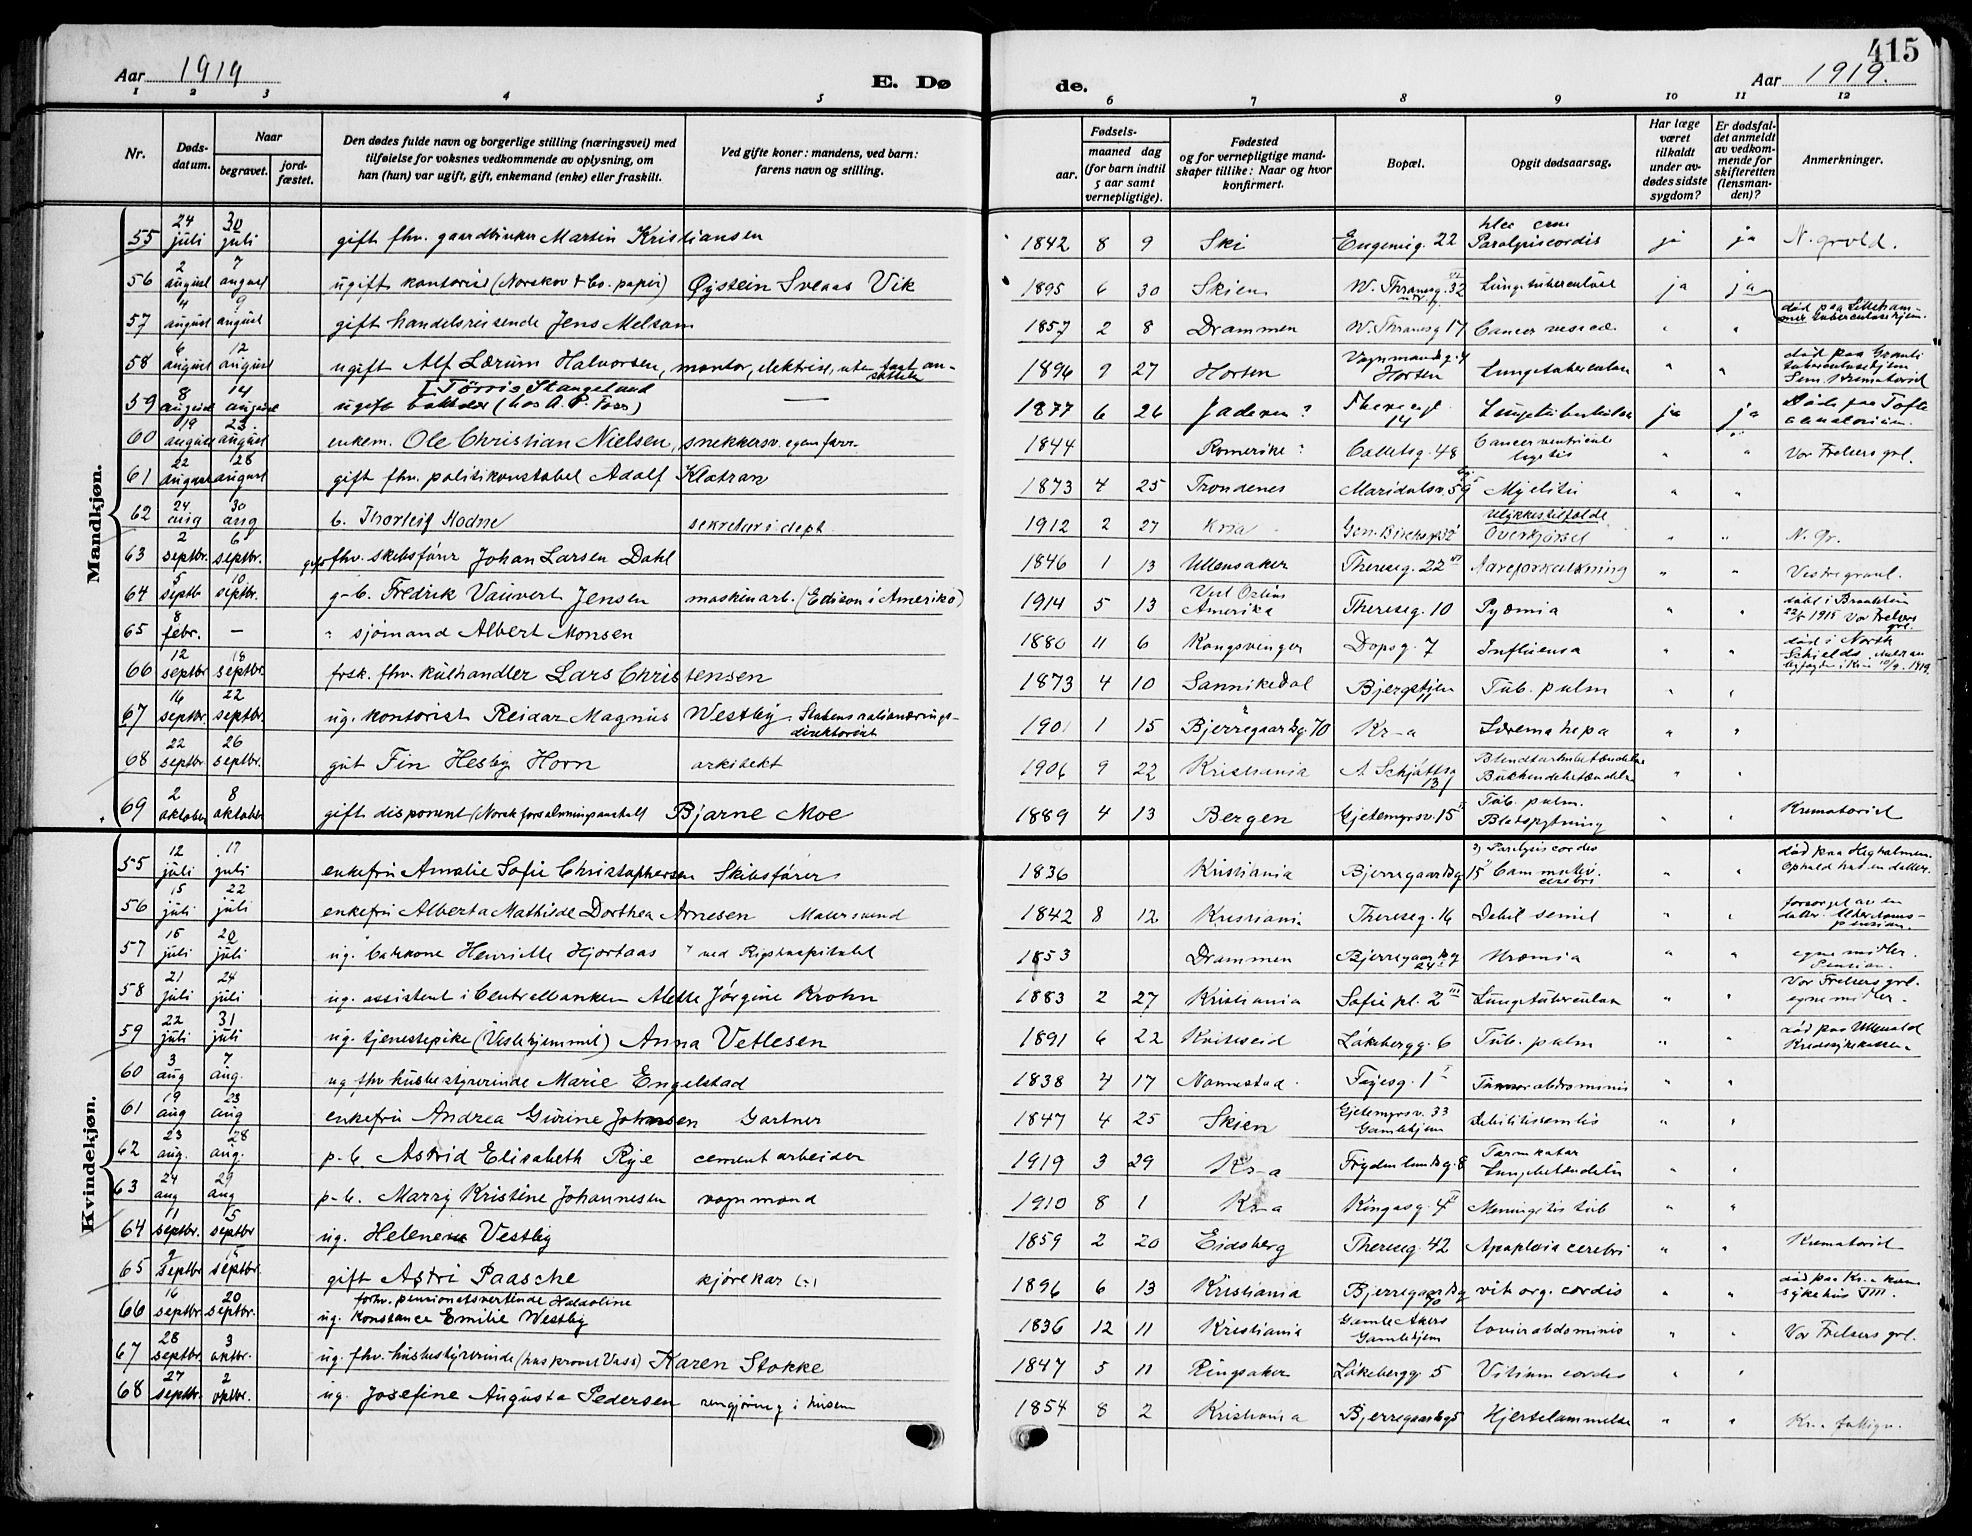 415
Aar 1919
E. Dø
de.
Aar 1919.
1 2 3 4 5 6 7 8 9 10 11 12
Nr.
Døds-
datum.
Naar
begravet.
jord-
fæstet.
Den dødes fulde navn og borgerlige stilling (næringsvei) med
tilføielse for voksnes vedkommende av oplysning, om
han (hun) var ugift, gift, enkemand (enke) eller fraskilt.
Ved gifte koner: mandens, ved barn:
farens navn og stilling.
Fødsels-
aar.
maaned dag
(for barn indtil
5 aar samt
vernepligtige).
Fødested
og for vernepligtige mand-
skaper tillike: Naar og hvor
konfirmert.
Bopæl.
Opgit dødsaarsag.
Har læge
været
tilkaldt
under av-
dødes sidste
sygdom?
Er dødsfal-
det anmeldt
av vedkom-
mende for
skifteretten
(lensman-
den)?
Anmerkninger.
Mandkjøn.
55 24 juli 30 juli gift fhv. gaardbruker Martin Kristiansen 1842 8 9 Ski Eugeniig. 22 Paralysis cordis ja ja N. gravl.
56 2 august 7 august ugift kontorist (Norskov & Co. papir) Øystein Sveaas Vik 1895 6 30 Skien W. Thranesg. 32 Lungetuberculose ja ja
57 4 august 9 august gift handelsreisende Jens Melsom 1857 2 8 Drammen W. Thranesg 17 Cancer vesicae " "
58 6 august 12 august ugift Alf Lærum Halvorsen, montør, elektrise, uten fast an-
sættelse 1896 9 27 Horten Vognmandsg. 4
Horten Lungetuberculose " " død paa Grønli
59 8 august 14 august ugift (hos A. P. Foss) Tørris Stangeland — 1877 6 26 Jæderen? Theresegt.
14 Lungetuberkulose ja ja Døde paa Tofte
60 19 august 23. august enkem. Ole Christian Nielsen, snekkersv. egen forr. 1844 Romerike? Colletsg. 48 Cancer ventriculi " " Vor Frelsers grl.
61 22 august 28 august gift fhv. politikonstabel Adolf Klatran 1873 4 25 Trondenes Maridalsv. 59 Myelitis " "
62 24 aug 30 aug b. Thorleif Hodne sekretær i dept 1912 2 27 Kria Ulykkestilfælde
Overkjørsel " " N. Gr.
63 2 septbr. 6 septbr. gift fhv. skibsfører Johan Larsen Dahl 1846 1 13 Ullensaker Thereseg. 22 Aareforkalkning " " Vestre gravl.
64 5 septb 10 septbr. g-b. Fredrik Vauvert Jensen maskinarb. (Edison i Amerika) 1914 5 13 Amerika Thereseg. 10 Pyæmia " "
65 8 febr. — " sjømand Albert Monsen 1880 11 6 Kongsvinger Dopsg. 7 Influensa " " død i North
Schields
66 12 septbr 18 septbr. frsk. fhv. kulhandler Lars Christensen 1873 4 10 Sannikedal Tub. pulm " "
67 16 septbr. 22 septbr. ug. kontorist Reidar Magnus Westby. Statens rationærings-
direktorat 1901 1 15 Bjerregaardsg. 70 Kr-a " "
68 22 septbr 26 septbr. gut Fin Hesby Horn arkitekt 1906 9 22 Kristiania A Schjøttsg
13 Blindtarmbetændelse
Bukhindebetændelse " "
69 2 oktober 8 oktober gift disponent (Norsk forsalmningsanstalt Bjarne Moe 1889 4 13 Bergen Gjetemyrsv. 15 Tub. pulm.
Blodspytning Krematoriet
Kvindekjøn.
55 12 juli 17 juli enkefru Amalie Sofie Christophersen Skibsfører 1836 Kristiania Bjerregaardsg 15 2) Paralysis cordis
cerebri " " død paa Hegholmen.
Ophold hos en datter.
56 15 juli 22 juli enkefru Alberta Mathilde Dorthea Arnesen Malersvend 1842 8 12 Kristiania Thereseg. 16 Debil senil " " forsørget av en
datter. Alderdoms-
pension.
57 15 juli 20 juli ug. Henriette Hjortaas ved Rigshospitalet 1853 Drammen Bjerregaardsg
24 Uræmia " " egne midler.
Pension.
58 21 juli 24 juli ug. assistent i Centralbanken Alette Jørgine Krohn 1883 2 27 Kristiania Sofie pl. 2 III Lungetuberculose " " Vor Frelsers grl.
egne midler.
59 22 juli 31 juli ug. tjenestepike (Vislehjemmet) Anna Vetlesen 1891 6 22 Kviteseid Låkebergg. 6 Tub. pulm " " død paa Ullevaal
60 3 aug 7 aug. ug fhv husbestyrerinde Marie Engelstad 1838 4 17 Nannestad Fayesg. 1 Tumor abdominis " "
61 19 aug 23 aug enkefru Andrea Gurine Johnsen Gartner 1847 4 25 Skien Gjetemyrsv. 33
Gamlehjem Debilitis senilis " "
62 23 aug. 28 aug. p-b. Astrid Elisabeth Rye cementarbeider 1919 3 29 Kr-a Frydenlundsg. 8 Tarmkatar
Lungebetændelse " "
63 24 aug 29 aug p-b. Marry Kristine Johannesen vognmand 1910 8 1 Kr-a Ringsg. 4 II Meningitis tub " "
64 1 septbr. 5 septbr ug. Helene Vestby 1859 2 20 Eidsberg Thereseg. 42 Apoplexia cerebri " " Krematoriet
65 9 septbr 15 septbr. gift Astri Paasche kjørekar 1896 6 13 Kristiania Bjerregaardsg
70 vit org. cordis " " død paa Kr.a kom
sykehus VIII.
66 16 septbr. 20 septbr. forhv. pensionatsvertinde
ug. Konstance Emilie Westby 1836 12 11 Kristiania Gamle Akers
Gamlehjem " " Vor Frelsers grl.
67 28 septbr. 3 oktbr. ug. fhv. husbestyrerinde (hos provst Vass) Karen Stokke 1847 5 11 Ringsaker Låkebergg. 5 Vitium cordis " "
68 27 septbr. 2 oktbr. ug. Josefine Augusta Pedersen rengjøring i husene 1854 8 2 Kristiania Bjerregaardsg 5 Hjertelammelse " "